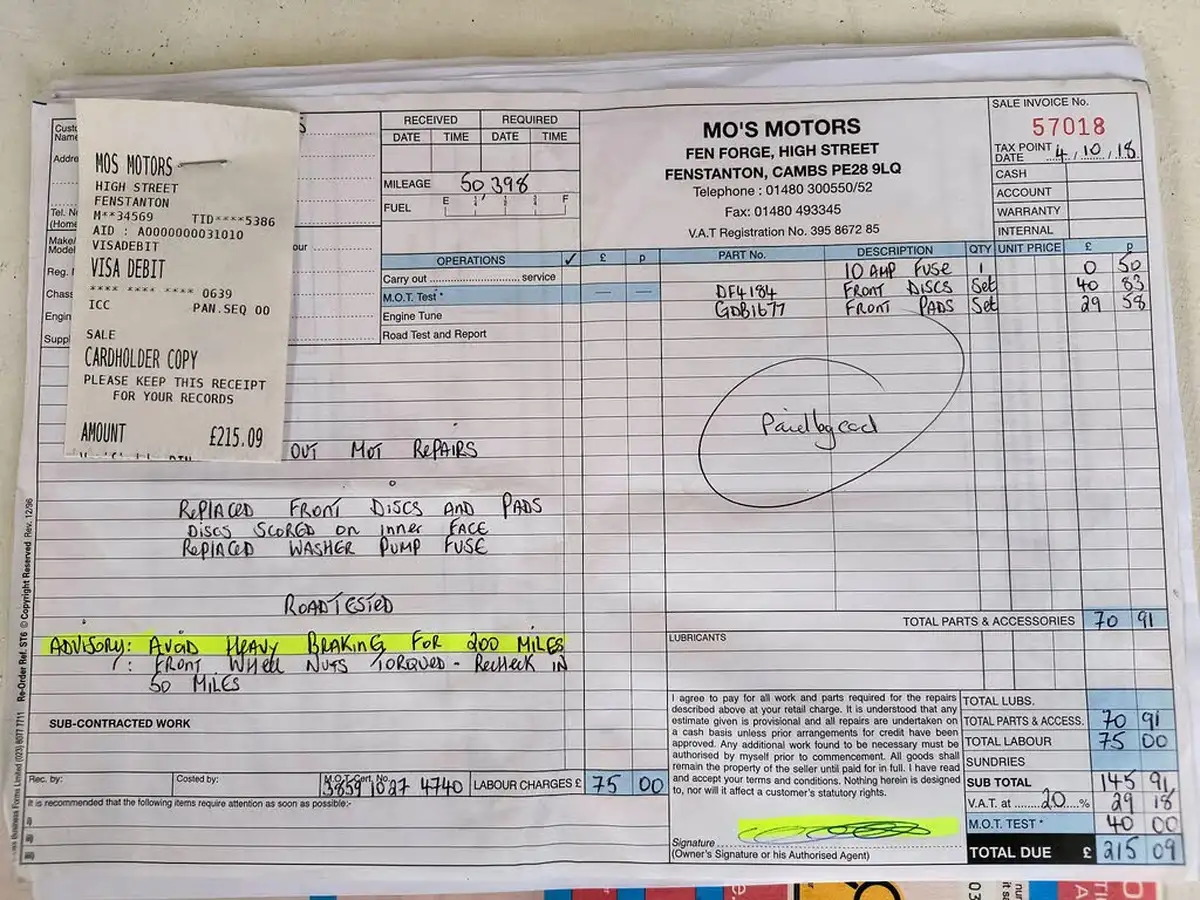 MOS MOTORS
HIGH STREET
FENSTANTON
M**34569 TID****5386
AID : A0000000031010
VISADEBIT
VISA DEBIT
**** **** **** 0639
ICC PAN.SEQ 00
SALE
CARDHOLDER COPY
PLEASE KEEP THIS RECEIPT
FOR YOUR RECORDS
AMOUNT £215.09
RECEIVED REQUIRED
DATE TIME DATE TIME
MILEAGE 50 398
FUEL E ¼ ½ ¾ F
MO'S MOTORS
FEN FORGE, HIGH STREET
FENSTANTON, CAMBS PE28 9LQ
Telephone : 01480 300550/52
Fax: 01480 493345
V.A.T Registration No. 395 8672 85
SALE INVOICE No.
57018
TAX POINT DATE 4, 10, 18
CASH
ACCOUNT
WARRANTY
INTERNAL
Name
Tel. No
(Home
Make/
Model
Reg.
Chass
Engin
OPERATIONS ✓ £ p
Carry out .......................... service
M.O.T. Test * — —
Engine Tune
Road Test and Report
PART No. DESCRIPTION QTY UNIT PRICE £ p
10 AMP FUSE 1 0 50
DF4184 FRONT DISCS Set 40 83
GDB1677 FRONT PADS Set 29 58
Paid by card
OUT MOT REPAIRS
REPLACED FRONT DISCS AND PADS
DISCS SCORED ON INNER FACE
REPLACED WASHER PUMP FUSE
ROADTESTED
ADVISORY: AVOID HEAVY BRAKING FOR 200 MILES
: FRONT WHEEL NUTS TORQUED - RECHECK IN
50 MILES
TOTAL PARTS & ACCESSORIES 70 91
LUBRICANTS
SUB-CONTRACTED WORK
Rec. by: Costed by: M.O.T. Cert. No. 3859 1027 4740 LABOUR CHARGES £ 75 00
It is recommended that the following items require attention as soon as possible:-
i)
ii)
iii)
I agree to pay for all work and parts required for the repairs
described above at your retail charge. It is understood that any
estimate given is provisional and all repairs are undertaken on
a cash basis unless prior arrangements for credit have been
approved. Any additional work found to be necessary must be
authorised by myself prior to commencement. All goods shall
remain the property of the seller until paid for in full. I have read
and accept your terms and conditions. Nothing herein is designed
to, nor will it affect a customer's statutory rights.
Signature
(Owner's Signature or his Authorised Agent)
TOTAL LUBS.
TOTAL PARTS & ACCESS. 70 91
TOTAL LABOUR 75 00
SUNDRIES
SUB TOTAL 145 91
V.A.T. at ........20....% 29 18
M.O.T. TEST * 40 00
TOTAL DUE £ 215 09
Business Forms Limited (020) 8077 7711 Re-Order Ref. ST6 © Copyright Reserved Rev. 12/96